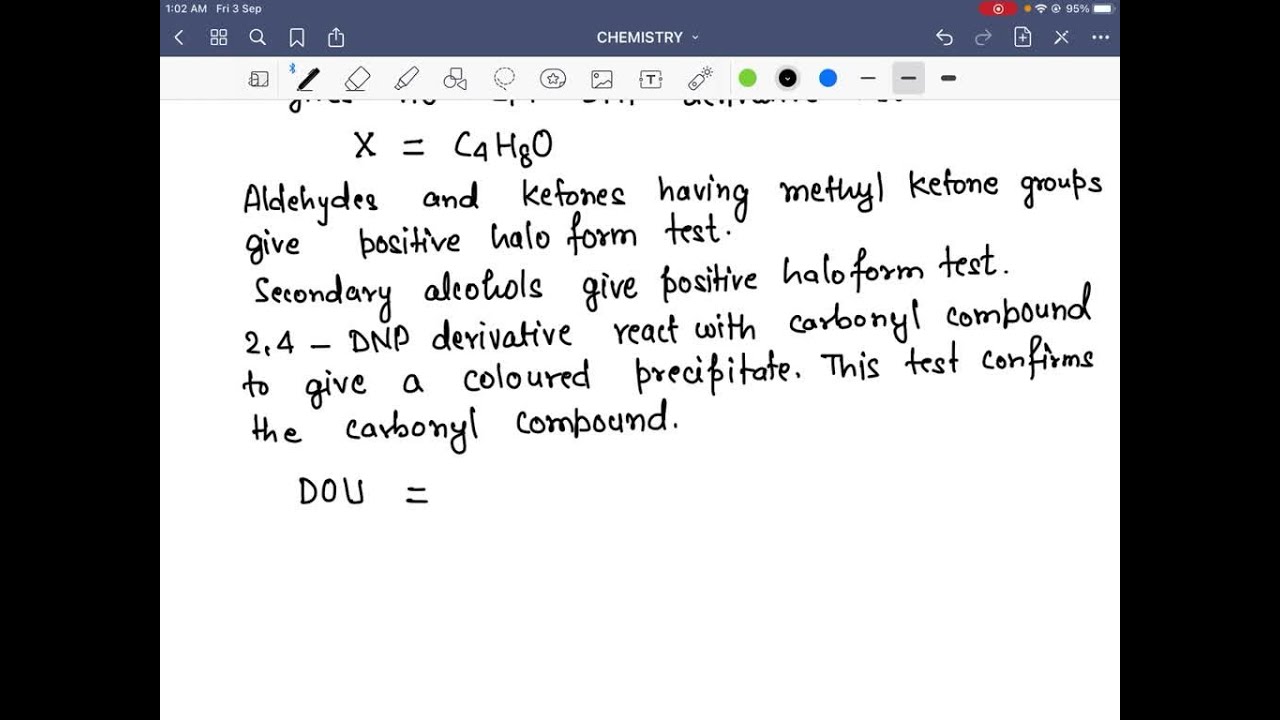 1:02 AM Fri 3 Sep
95%
CHEMISTRY
T
X = C4H8O
Aldehydes and ketones having methyl ketone groups
give positive halo form test.
Secondary alcohols give positive haloform test.
2,4 - DNP derivative react with carbonyl compound
to give a coloured precipitate. This test confirms
the carbonyl compound.
DOU =